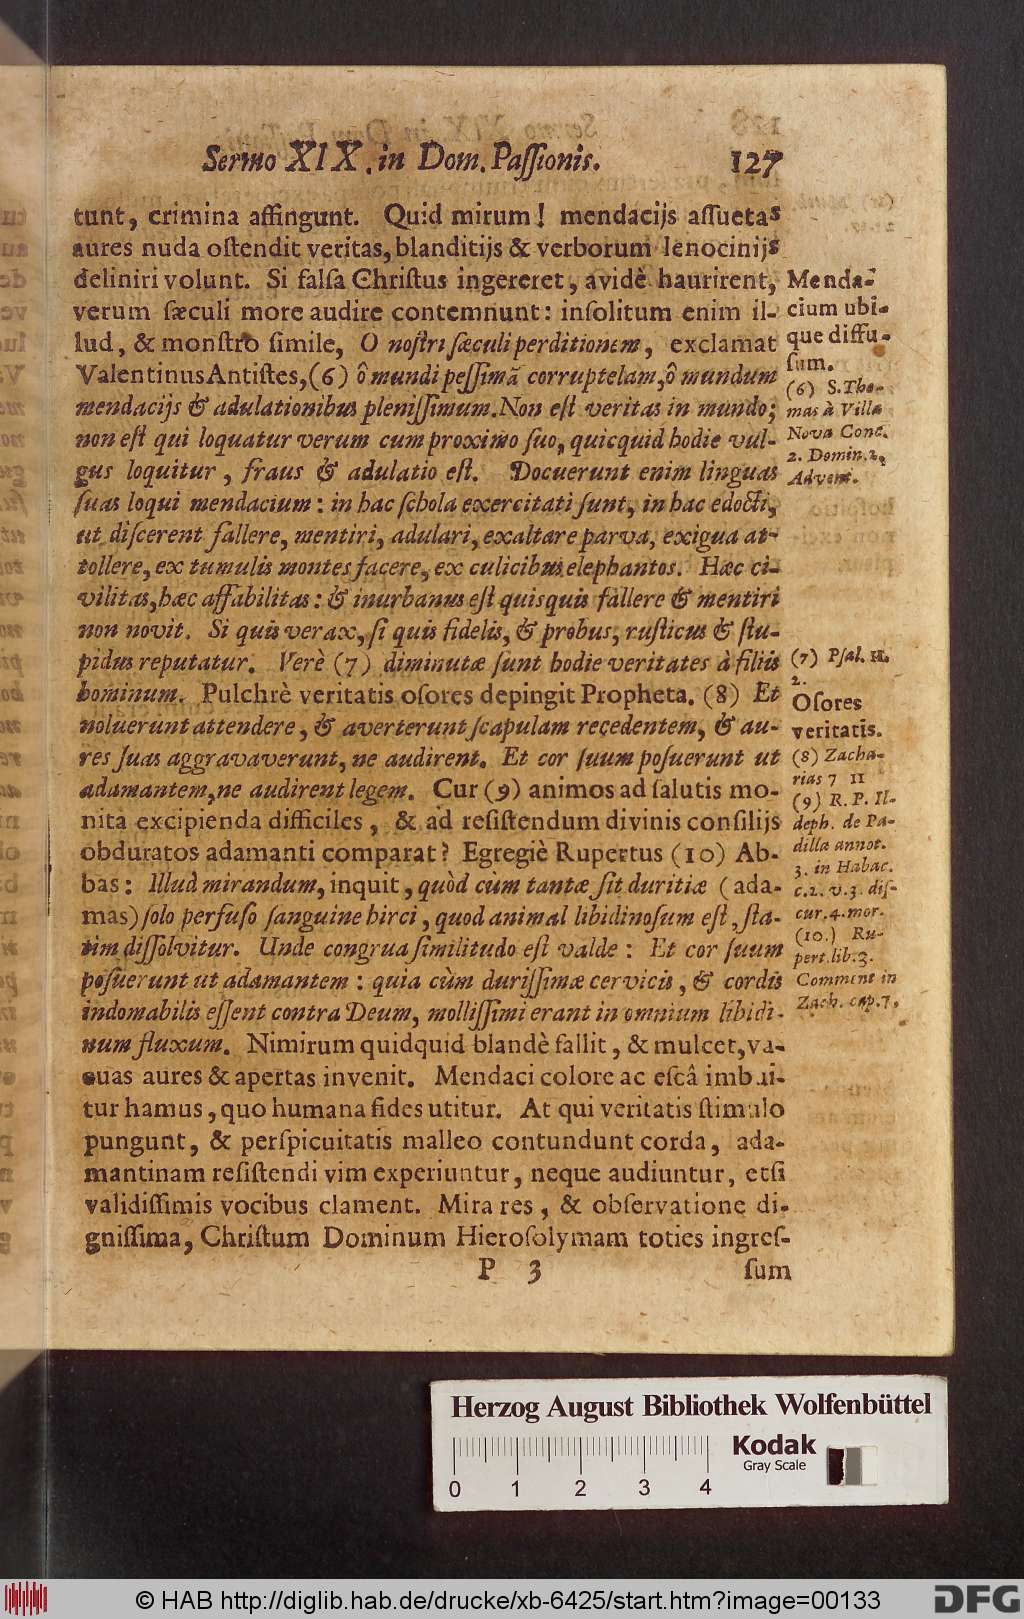 Sermo XIX. in Dom. Paſſionis. 127
tunt, crimina affingunt. Quid mirum! mendacijs aſſuetas
aures nuda oſtendit veritas, blanditijs & verborum lenocinijs
deliniri volunt. Si falſa Chriſtus ingereret, avidè haurirent,
verum ſæculi more audire contemnunt: inſolitum enim il-
lud, & monſtro ſimile, O noſtri ſæculi perditionem, exclamat
Valentinus Antiſtes, (6) ô mundi peſſimã corruptelam, ô mundum
mendacijs & adulationibus pleniſſimum. Non eſt veritas in mundo;
non eſt qui loquatur verum cum proximo ſuo, quicquid hodie vul-
gus loquitur, fraus & adulatio eſt. Docuerunt enim linguas
ſuas loqui mendacium: in hac ſchola exercitati ſunt, in hac edocti,
ut diſcerent fallere, mentiri, adulari, exaltare parva, exigua at-
tollere, ex tumulis montes facere, ex culicibus elephantos. Hæc ci-
vilitas, hæc affabilitas: & inurbanus eſt quisquis fallere & mentiri
non novit. Si quis verax, ſi quis fidelis, & probus, ruſticus & ſtu-
pidus reputatur. Verè (7) diminutæ ſunt hodie veritates à filiis
hominum. Pulchrè veritatis oſores depingit Propheta. (8) Et
noluerunt attendere, & averterunt ſcapulam recedentem, & au-
res ſuas aggravaverunt, ne audirent. Et cor ſuum poſuerunt ut
adamantem, ne audirent legem. Cur (9) animos ad ſalutis mo-
nita excipienda difficiles, & ad reſiſtendum divinis conſilijs
obduratos adamanti comparat? Egregiè Rupertus (10) Ab-
bas: Illud mirandum, inquit, quòd cùm tantæ ſit duritiæ (ada-
mas) ſolo perfuſo ſanguine hirci, quod animal libidinoſum eſt, ſta-
tim diſſolvitur. Unde congrua ſimilitudo eſt valde: Et cor ſuum
poſuerunt ut adamantem: quia cùm duriſſimæ cervicis, & cordis
indomabilis eſſent contra Deum, molliſſimi erant in omnium libidi-
num fluxum. Nimirum quidquid blandè fallit, & mulcet, va-
cuas aures & apertas invenit. Mendaci colore ac eſcâ imbui-
tur hamus, quo humana fides utitur. At qui veritatis ſtimulo
pungunt, & perſpicuitatis malleo contundunt corda, ada-
mantinam reſiſtendi vim experiuntur, neque audiuntur, etſi
validiſſimis vocibus clament. Mira res, & obſervatione di-
gniſſima, Chriſtum Dominum Hieroſolymam toties ingreſ-
P 3 ſum
Menda-
cium ubi-
que diffu-
ſum.
(6) S. Tho-
mas à Villa
Nova Conc.
2. Domin. 2.
Advent.
(7) Pſal. 11.
2.
Oſores
veritatis.
(8) Zacha-
rias 7 11
(9) R. P. Il-
deph. de Pa-
dilla annot.
3. in Habac.
c. 2. v. 3. diſ-
cur. 4. mor.
(10.) Ru-
pert. lib. 3.
Comment in
Zach. cap. 7.
Herzog August Bibliothek Wolfenbüttel
Kodak
Gray Scale
0 1 2 3 4
© HAB http://diglib.hab.de/drucke/xb-6425/start.htm?image=00133
DFG